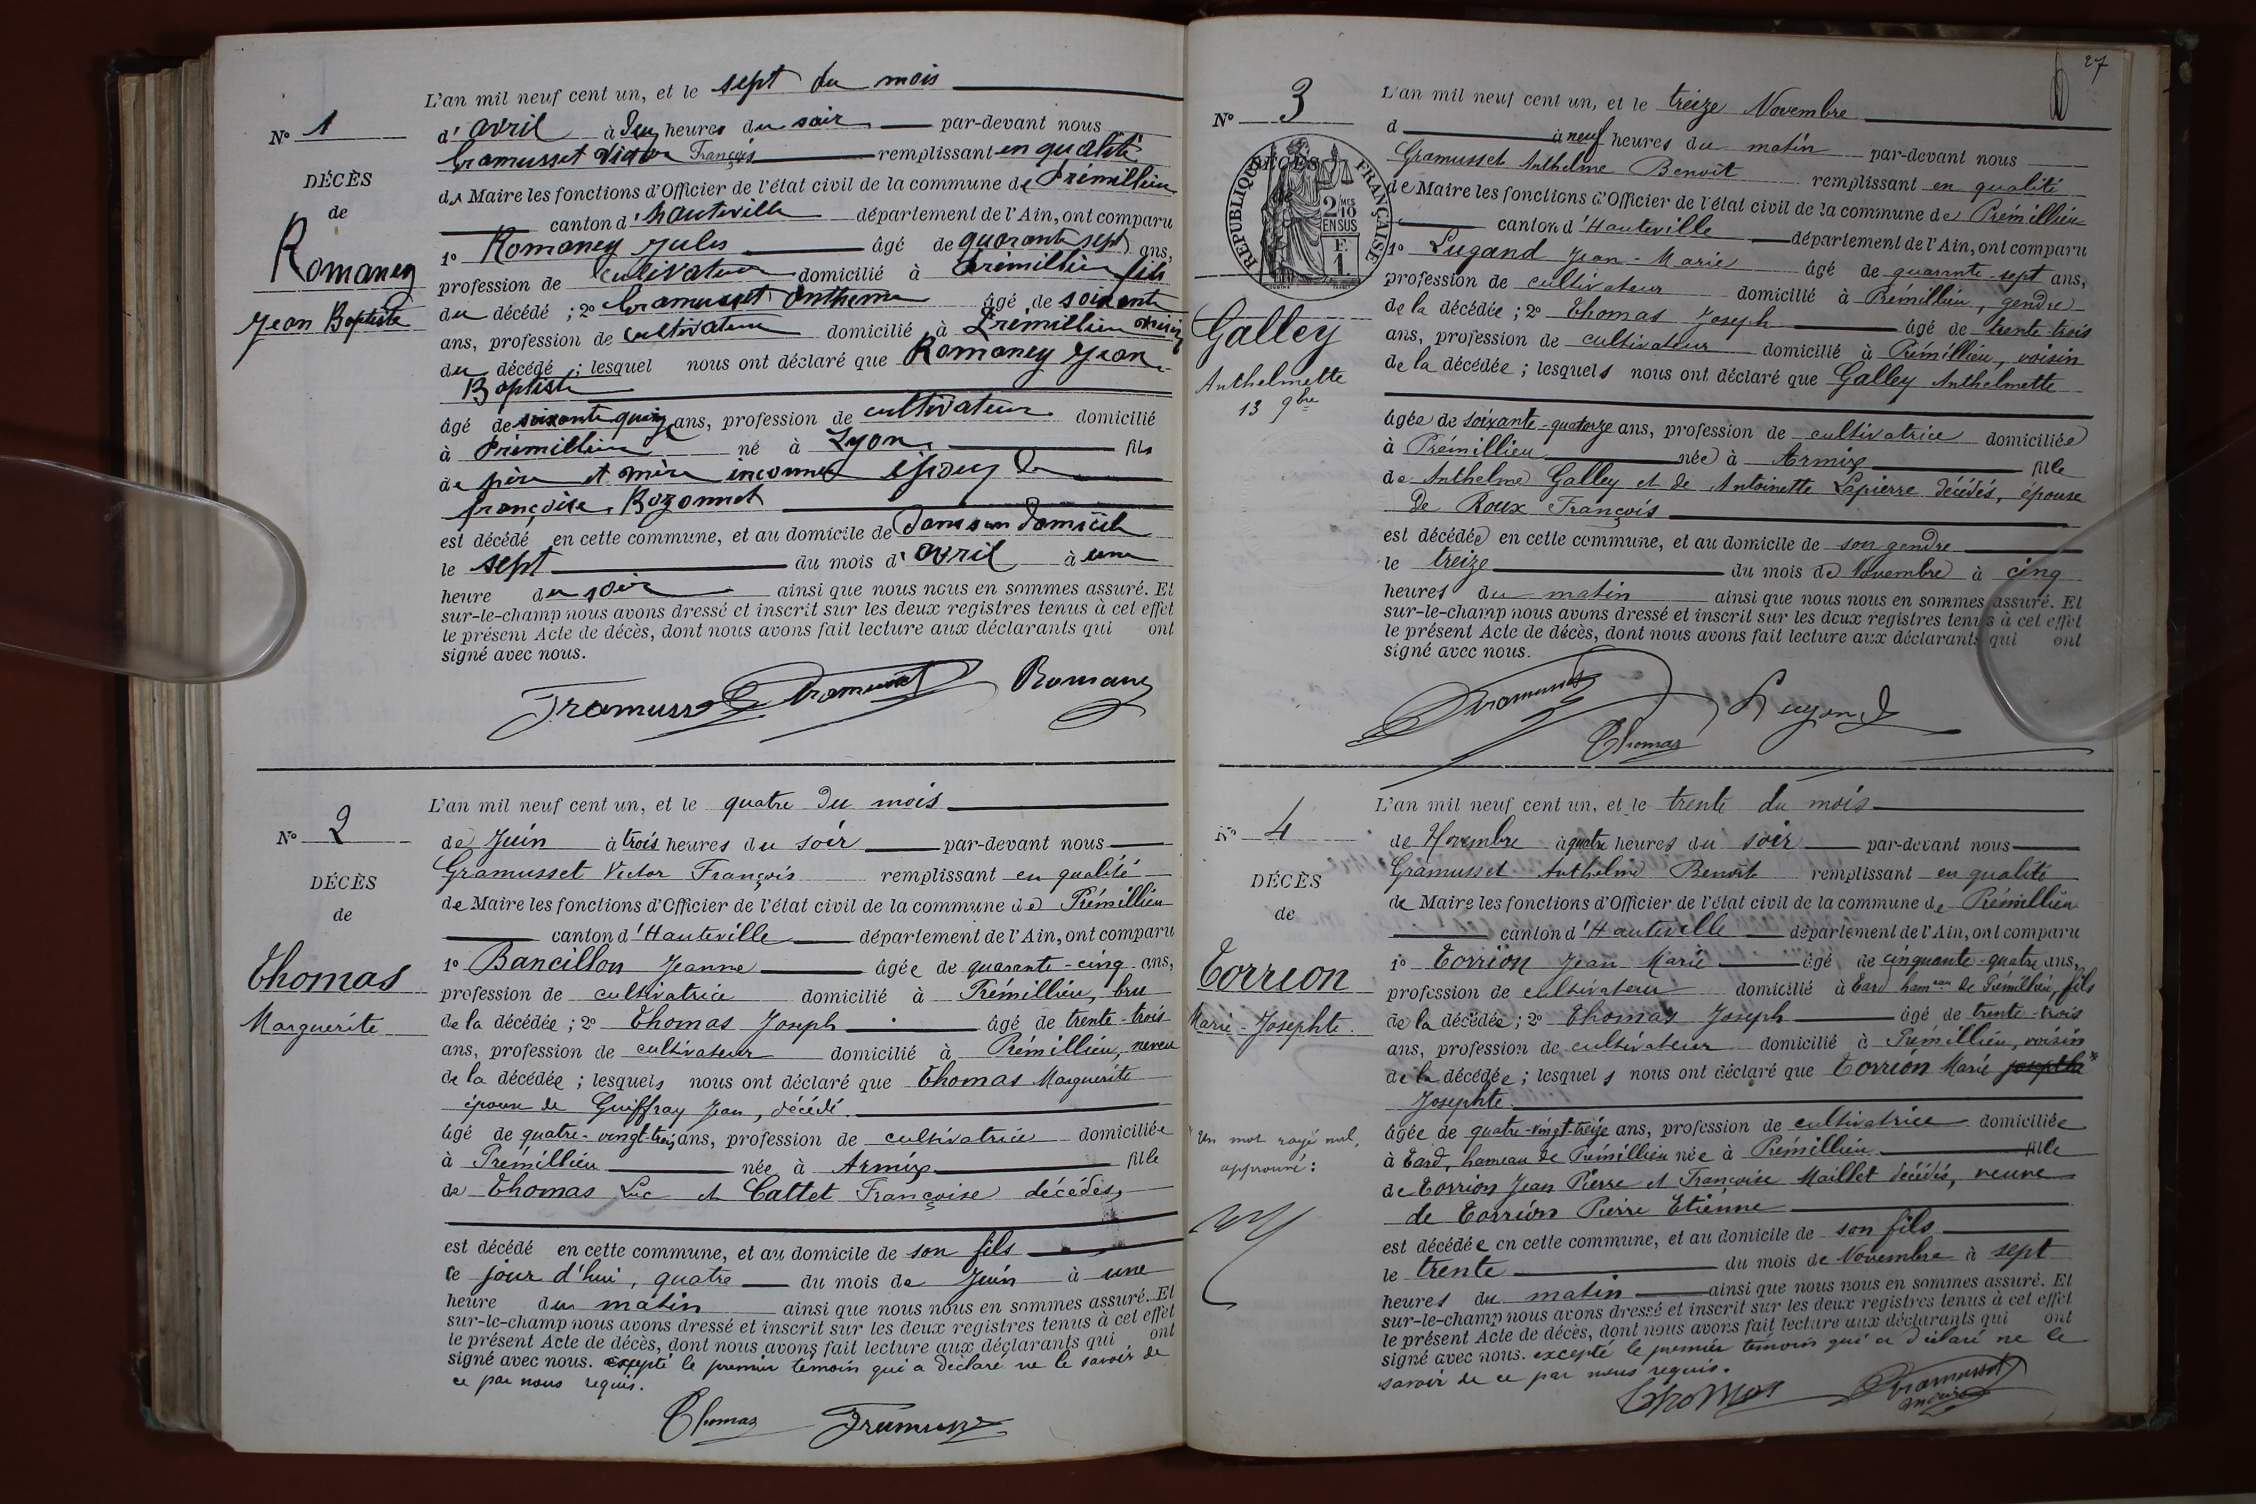 L'an mil neuf cent un, et le sept du mois
N° 1
d'avril à deux heures du soir par-devant nous
Gramusset Victor François remplissant en qualité
DÉCÈS
de Maire les fonctions d'Officier de l'état civil de la commune de Prémillieu
de
canton d'Hauteville département de l'Ain, ont comparu
Romaney
1° Romaney Jules âgé de quarante sept ans,
profession de cultivateur domicilié à Prémillieu fils
Jean Baptiste
du décédé ; 2° Gramusset Anthelme âgé de soixante
ans, profession de cultivateur domicilié à Prémillieu voisin
du décédé ; lesquel nous ont déclaré que Romaney Jean
Baptiste
âgé de soixante quinze ans, profession de cultivateur domicilié
à Prémillieu né à Lyon fils
de père et mère inconnus époux de
françoise Bozonnet
est décédé en cette commune, et au domicile de dans son domicile
le sept du mois d'avril à une
heure du soir ainsi que nous nous en sommes assuré. Et
sur-le-champ nous avons dressé et inscrit sur les deux registres tenus à cet effet
le présent Acte de décès, dont nous avons fait lecture aux déclarants qui ont
signé avec nous.
Gramusset Gramusset Romaney
L'an mil neuf cent un, et le quatre du mois
N° 2
de Juin à trois heures du soir par-devant nous
Gramusset Victor François remplissant en qualité
DÉCÈS
de Maire les fonctions d'Officier de l'état civil de la commune de Prémillieu
de
canton d'Hauteville département de l'Ain, ont comparu
Thomas
1° Bancillon Jeanne âgée de quarante-cinq ans,
profession de cultivatrice domicilié à Prémillieu, bru
Marguerite
de la décédée ; 2° Thomas Joseph âgé de trente-trois
ans, profession de cultivateur domicilié à Prémillieu, neveu
de la décédée ; lesquels nous ont déclaré que Thomas Marguerite
épouse de Guiffray Jean, décédé.
âgé de quatre-vingt-trois ans, profession de cultivatrice domiciliée
à Prémillieu née à Armix fille
de Thomas Luc et Cattet Françoise décédés,
est décédé en cette commune, et au domicile de son fils
le jour d'hui, quatre du mois de Juin à une
heure du matin ainsi que nous nous en sommes assuré. Et
sur-le-champ nous avons dressé et inscrit sur les deux registres tenus à cet effet
le présent Acte de décès, dont nous avons fait lecture aux déclarants qui ont
signé avec nous. excepté le premier témoin qui a déclaré ne le savoir de
ce par nous requis.
Thomas Gramusset
27
L'an mil neuf cent un, et le treize Novembre
N° 3
d à neuf heures du matin par-devant nous
Gramusset Anthelme Benoit remplissant en qualité
DÉCÈS
de
RÉPUBLIQUE FRANÇAISE
2/10 MES
EN SUS
F.
1.
de Maire les fonctions d'Officier de l'état civil de la commune de Prémillieu
canton d'Hauteville département de l'Ain, ont comparu
1° Lugand Jean-Marie âgé de quarante-sept ans,
profession de cultivateur domicilié à Prémillieu, gendre
Galley
de la décédée ; 2° Thomas Joseph âgé de trente-trois
ans, profession de cultivateur domicilié à Prémillieu, voisin
Anthelmette
de la décédée ; lesquels nous ont déclaré que Galley Anthelmette
13 9bre
âgée de soixante-quatorze ans, profession de cultivatrice domiciliée
à Prémillieu née à Armix fille
de Anthelme Galley et de Antoinette Lapierre décédés, épouse
De Roux François
est décédée en cette commune, et au domicile de son gendre
le treize du mois de Novembre à cinq
heures du matin ainsi que nous nous en sommes assuré. Et
sur-le-champ nous avons dressé et inscrit sur les deux registres tenus à cet effet
le présent Acte de décès, dont nous avons fait lecture aux déclarants qui ont
signé avec nous.
Gramusset Lugand
Thomas
L'an mil neuf cent un, et le trente du mois
N° 4
de Novembre à quatre heures du soir par-devant nous
Gramusset Anthelme Benoit remplissant en qualité
DÉCÈS
de Maire les fonctions d'Officier de l'état civil de la commune de Prémillieu
de
canton d'Hauteville département de l'Ain, ont comparu
Torrion
1° Torrion Jean Marie âgé de cinquante-quatre ans,
profession de cultivateur domicilié à Tard hameau de Prémillieu, fils
Marie-Josephte.
de la décédée ; 2° Thomas Joseph âgé de trente-trois
ans, profession de cultivateur domicilié à Prémillieu, voisin
de la décédée ; lesquels nous ont déclaré que Torrion Marie Josephte*
Josephte.
âgée de quatre-vingt-treize ans, profession de cultivatrice domiciliée
* Un mot rayé nul,
approuvé :
à Tard, hameau de Prémillieu née à Prémillieu fille
de Torrion Jean Pierre et Françoise Maillet décédés, veuve
de Torrion Pierre Etienne
est décédée en cette commune, et au domicile de son fils
le trente du mois de Novembre à sept
heures du matin ainsi que nous nous en sommes assuré. Et
sur-le-champ nous avons dressé et inscrit sur les deux registres tenus à cet effet
le présent Acte de décès, dont nous avons fait lecture aux déclarants qui ont
signé avec nous. excepté le premier témoin qui a déclaré ne le
savoir de ce par nous requis.
Thomas Gramusset